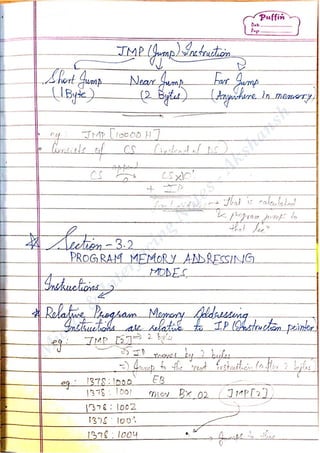 Puffin
Date
Page
JMP (Jump) Instruction
Short Jump Near Jump Far Jump
(1 Byte) (2 Bytes) (Anywhere in memory)
eg: JMP [10000 H]
Consists of CS (instead of DS)
CS CS X 10
+ IP
that is calculated
& program jumps to
that loc
Section - 3.2
PROGRAM MEMORY ADDRESSING
MODES
Instructions
Relative Program Memory Addressing
Instructions are relative to IP (Instruction pointer)
eg: JMP [2] 2 bytes
IP moves by 2 bytes
Jump to the next instruction (after 2 bytes)
eg: 1378:1000 EB
1378:1001 mov BX 02 JMP[2]
1378:1002
1378:1003
1378:1004